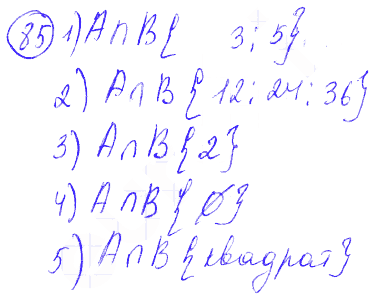 85 1) A∩B{ 3; 5}
2) A∩B{12; 24; 36}
3) A∩B{2}
4) A∩B{∅}
5) A∩B{квадрат}